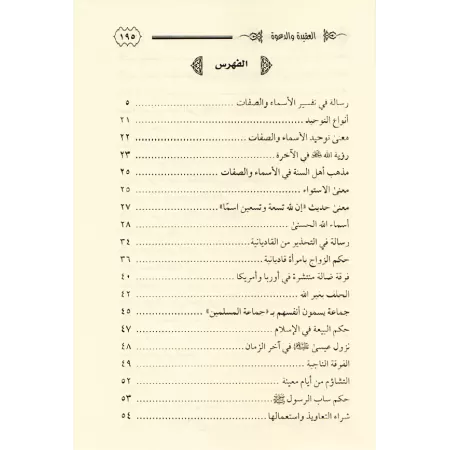 العقيدة والدعوة ١٩٥
الفهرس
رسالة في تفسير الأسماء والصفات ٥
أنواع التوحيد ٢١
معنى توحيد الأسماء والصفات ٢٢
رؤية الله ﷻ في الآخرة ٢٣
مذهب أهل السنة في الأسماء والصفات ٢٥
معنى الاستواء ٢٥
معنى حديث «إن لله تسعة وتسعين اسمًا» ٢٧
أسماء الله الحسنى ٢٨
رسالة في التحذير من القاديانية ٣٤
حكم الزواج بامرأة قاديانية ٣٦
فرقة ضالة منتشرة في أوربا وأمريكا ٤٠
الحلف بغير الله ٤٢
جماعة يسمون أنفسهم بـ «جماعة المسلمين» ٤٥
حكم البيعة في الإسلام ٤٧
نزول عيسى ﷺ في آخر الزمان ٤٨
الفرقة الناجية ٤٩
التشاؤم من أيام معينة ٥٢
حكم ساب الرسول ﷺ ٥٣
شراء التعاويذ واستعمالها ٥٤